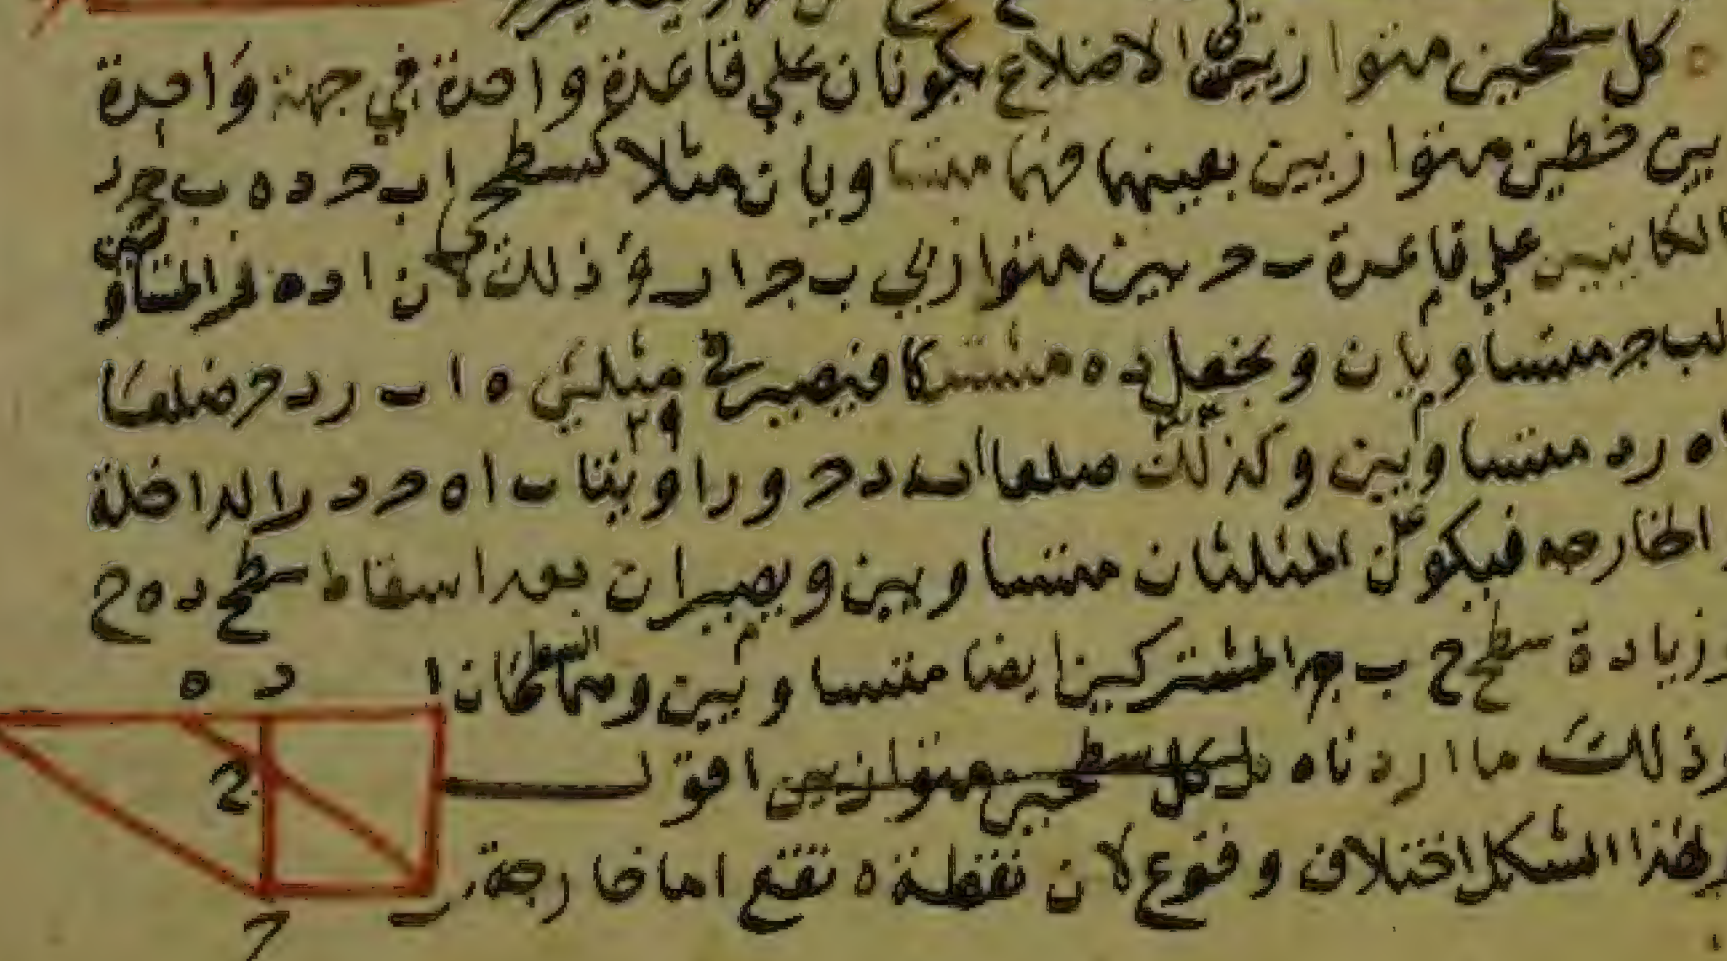 كل سطحين متوازيي الاضلاع يكونان علي قاعدة واحدة في جهة واحدة
بين خطين متوازيين بعينهما فهما متساويان مثلا كسطحي ا ب ح د ه ب ح ر
الكاينين علي قاعدة ب ح بين متوازيي ب ح ا ر وذلك لان ا د ه ر المتساويين
لب ح متساويان ونجعل د ه مشتركا فيصير في مثلثي ه ا ب ر د ح ضلعا
ا ه ر د متساويين وكذلك ضلعا ا ب د ح وزاويتا ب ا ه ح د ر الداخلة
والخارجه فيكون المثلثان متساويين ويصيران بعد اسقاط سطح د ه ح
وزيادة سطح ح ب ح المشتركين ايضا متساويين وهما السطحان
وذلك ما اردناه كل سطحين متوازيين اقول
لهذا الشكل اختلاف وقوع لان نقطة ه تقع اما خارجة
ا د ه
ح
ب ح